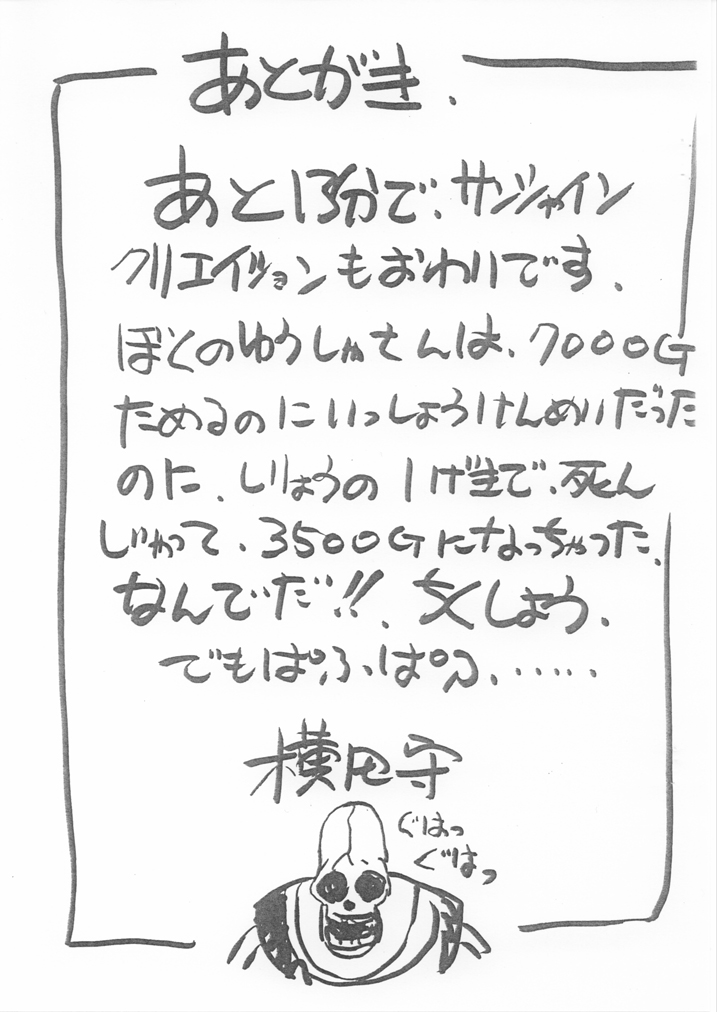 あとがき.
あと13分で、サンシャイン
クリエイションもおわりです.
ぼくのゆうしゃさんは、7000G
ためるのにいっしょうけんめいだった
のに、しりょうの1げきで、死ん
じゃって、3500Gになっちゃった.
なんでだ!!、ちくしょう.
でもぱふぱふ、.....
横田守
ぐはっ
ぐはっ